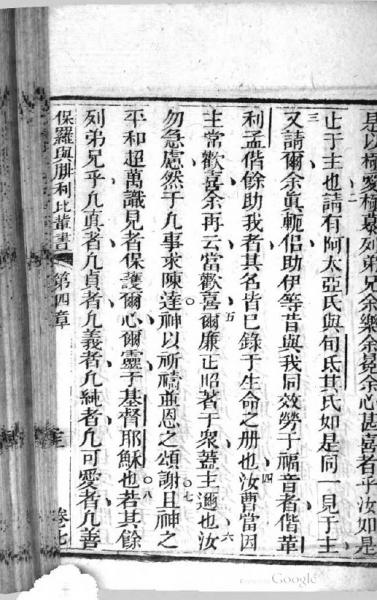 是以極愛極慕列弟兄余樂余冕余心甚喜者乎汝如是
止于主也請有阿太亞氏與句氐其氏如是同一見于主
三
又請爾余真軛侶助伊等昔與我同效勞于福音者偕革
利孟偕餘助我者其名皆已錄于生命之册也汝曹當因
四
主當歡喜余再云當歡喜爾廉正昭著于衆蓋主邇也汝
五 六
勿急慮然于凡事求陳達神以祈禱並恩之頌謝且神之
七
平和超萬識見者保護爾心爾靈于基督耶穌也若其餘
八
列弟兄乎凡真者凡貞者凡義者凡純者凡可愛者凡善
保羅與腓利比輩書 第四章 三 卷七
Google